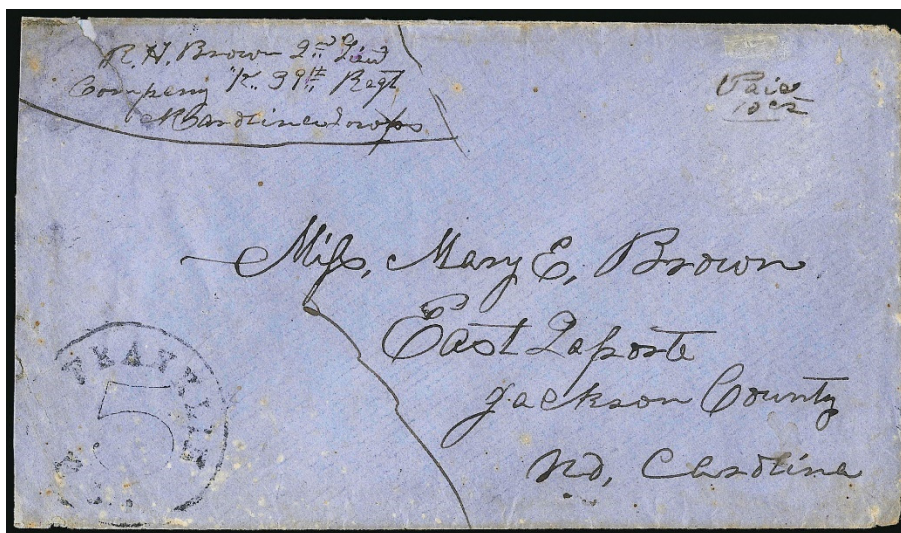 R. H. Brown 2nd Lieu
Company "K. 39th, Regt
N Carolina Troops
Paid
10 cts
Miss, Mary E, Brown
East Laporte
Jackson County
No, Carolina
5